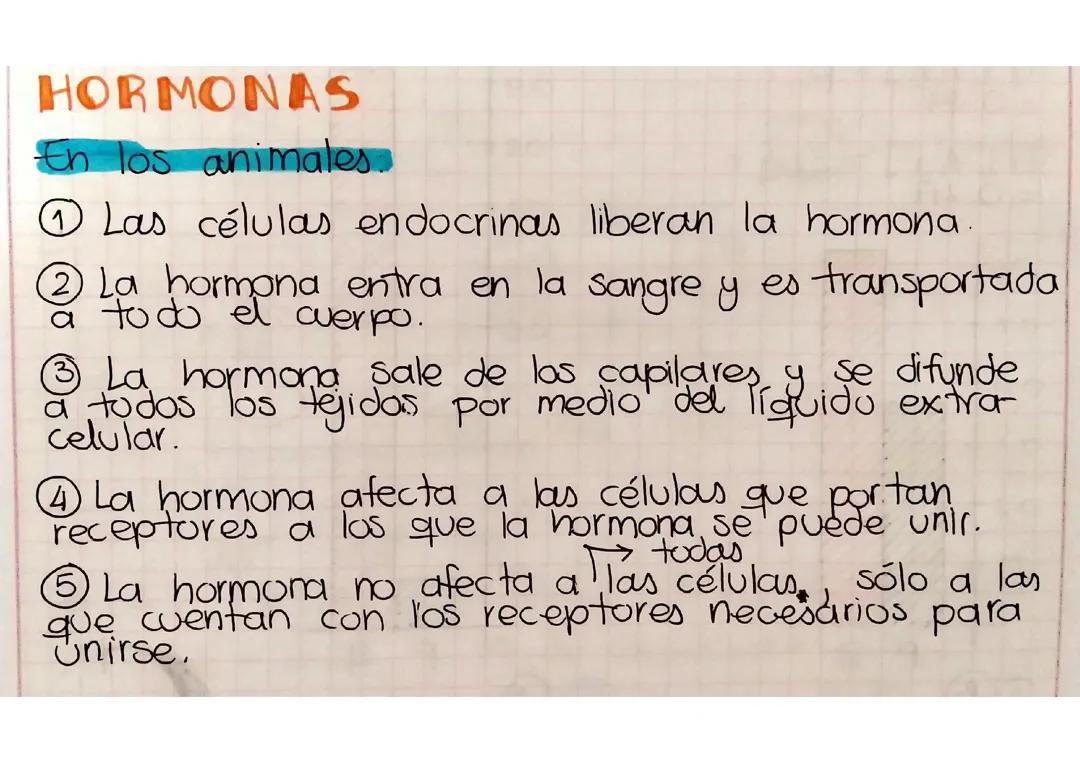 HORMONAS
En los animales:
① Las células endocrinas liberan la hormona.
② La hormona entra en la sangre y es transportada
a todo el cuerpo.
③ La hormona sale de los capilares y se difunde
a todos los tejidos por medio del líquido extra-
celular.
④ La hormona afecta a las células que portan
receptores a los que la hormona se puede unir.
→ todas
⑤ La hormona no afecta a las células, sólo a las
que cuentan con los receptores necesarios para
unirse.